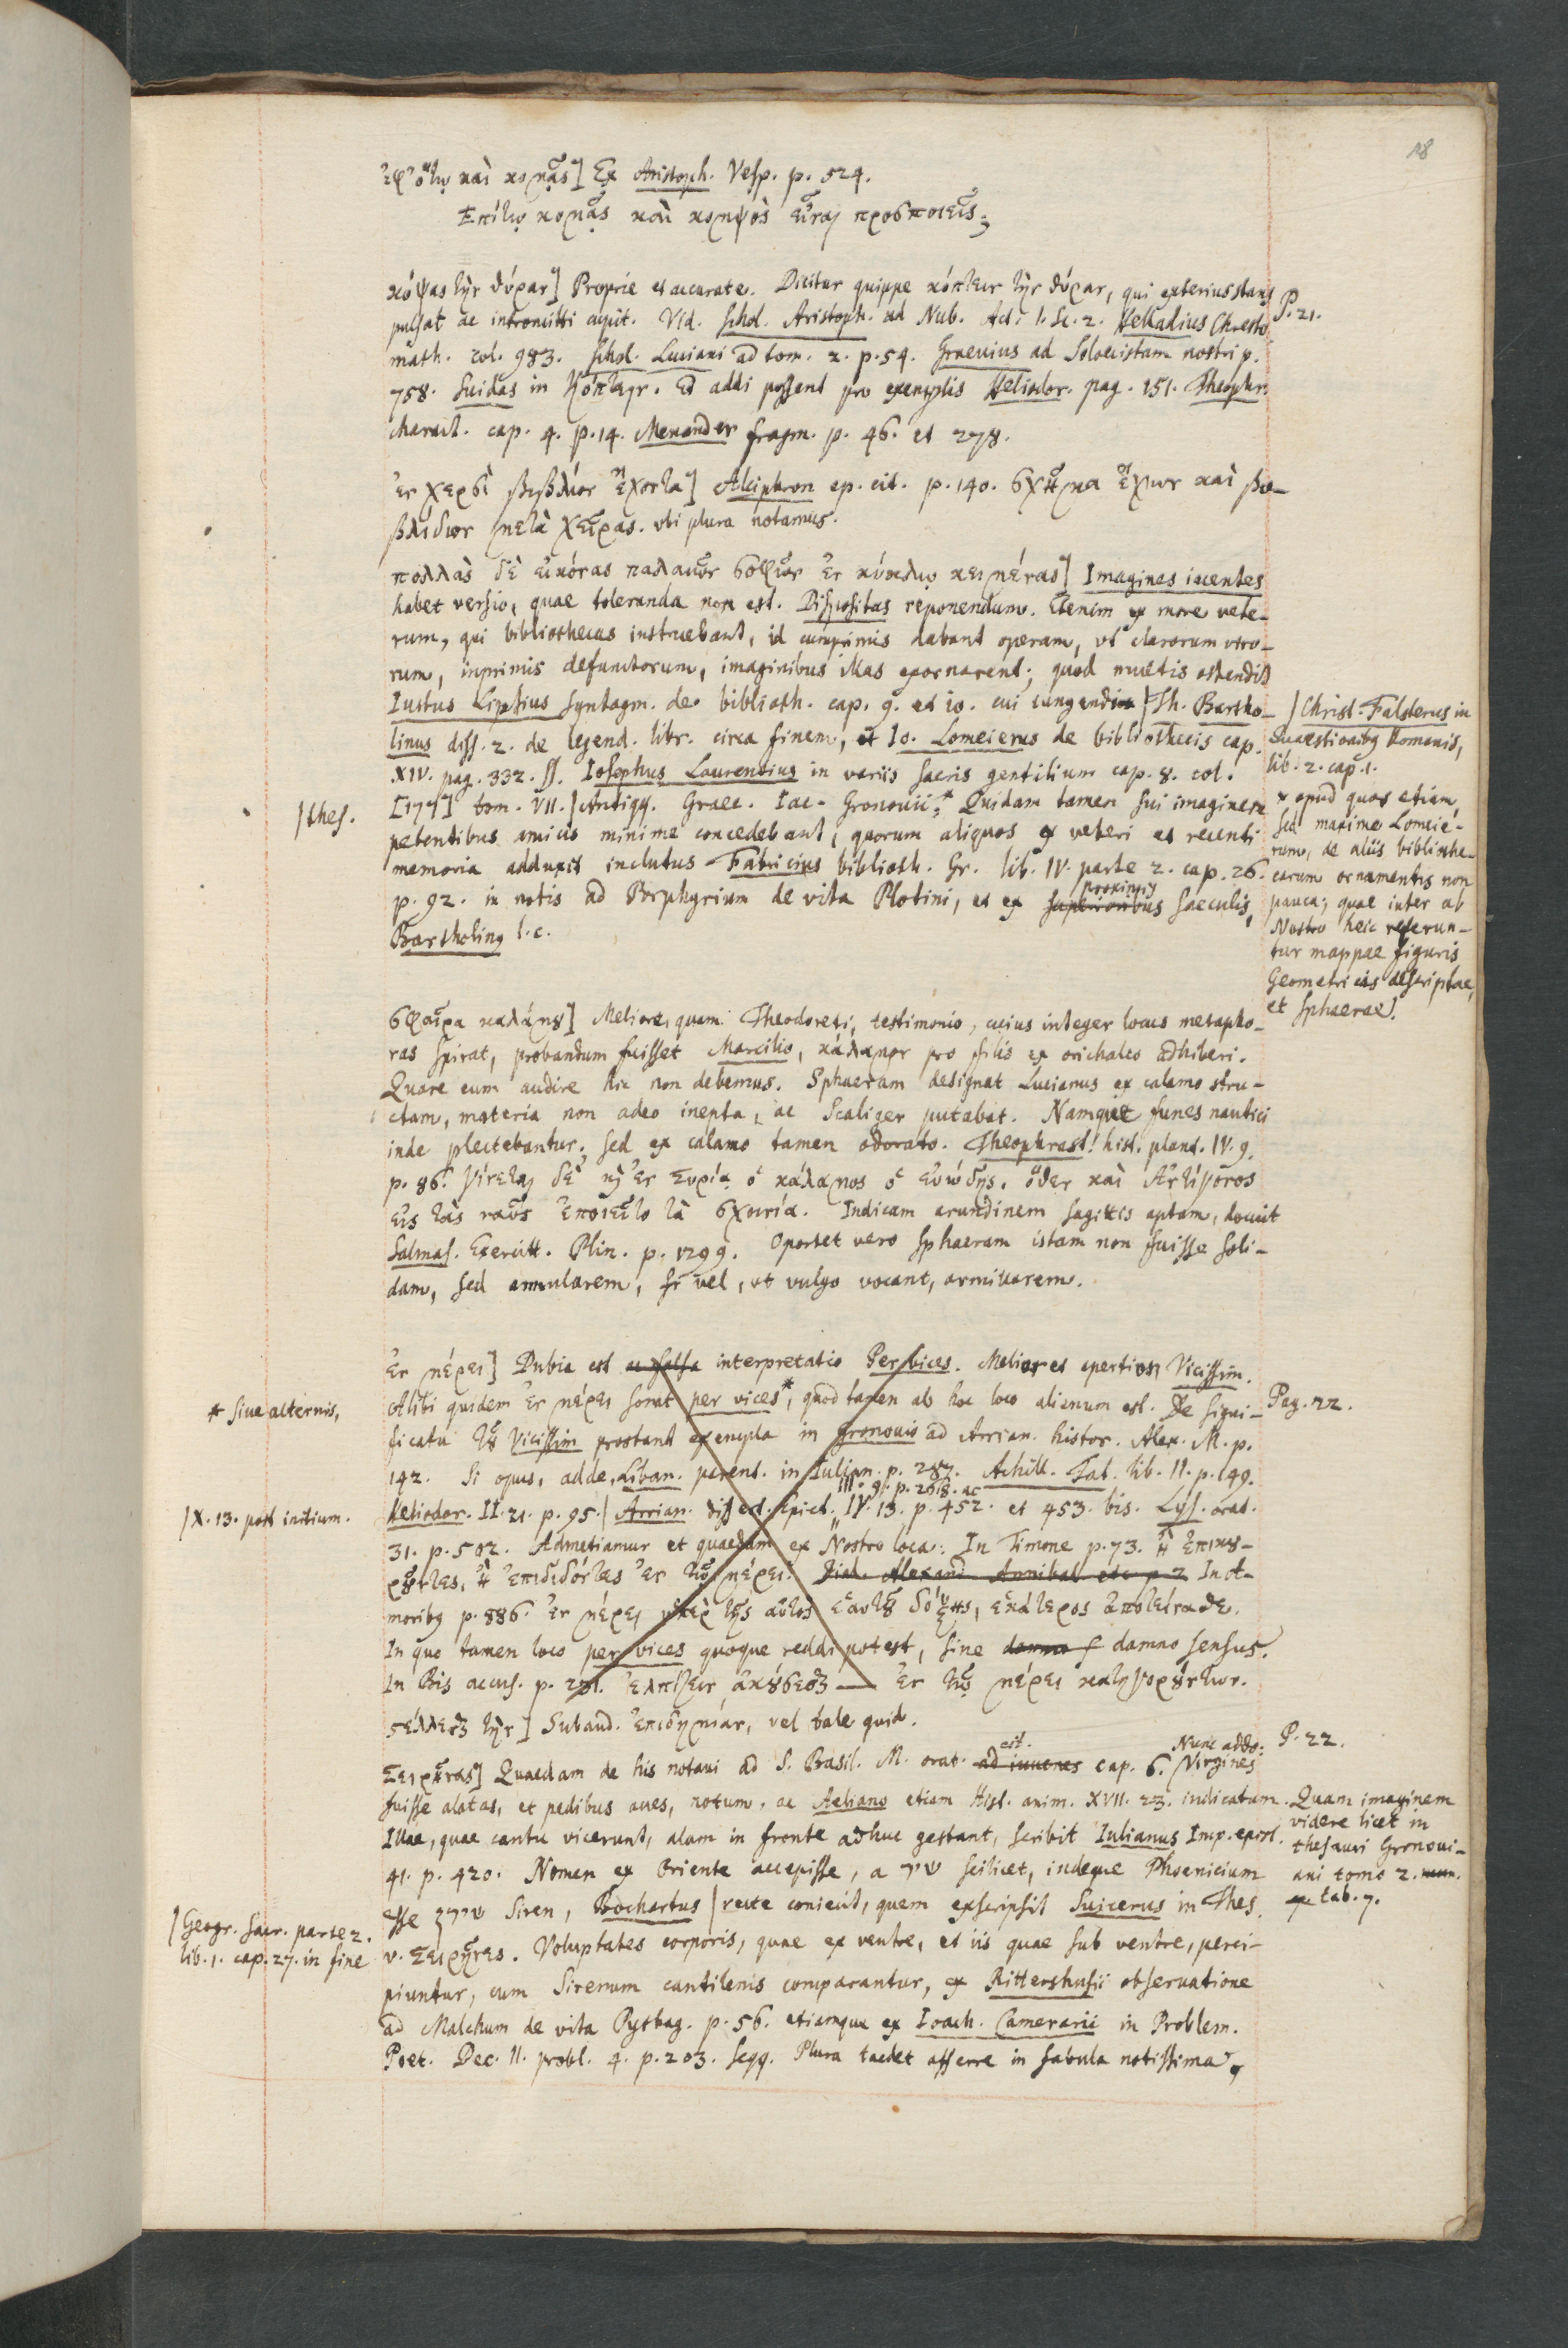 18
ἐφ' ὅτῳ καὶ κομᾷς] Ex Aristoph. Vesp. p. 524.
Ἐπὶ τῷ κομᾷς καὶ κομψὸς εἶναι προσποιεῖς;
κόψας τὴν θύραν] Proprie et accurate. Dicitur quippe κόπτειν τὴν θύραν, qui exterius stans
P. 21.
pulsat ac intromitti cupit. Vid. Schol. Aristoph. ad Nub. Act. 1. Sc. 2. Helladius Chresto
math. col. 983. Schol. Luciani ad tom. 2. p. 54. Graevius ad Soloecistam nostri p.
758. Suidas in Κόπτειν. Et addi possent pro exemplis Heliodor. pag. 151. Theophr.
charact. cap. 4. p. 14. Menander fragm. p. 46. et 278.
ἐν χερσὶ βιβλίον ἔχοντα] Alciphron ep. cit. p. 140. σχῆμα ἔχων καὶ βι-
βλίδιον μετὰ χεῖρας. ubi plura notamus.
πολλὰς δὲ εἰκόνας παλαιῶν σοφῶν ἐν κύκλῳ κειμένας] Imagines iacentes
habet versio, quae toleranda non est. Dispositas reponendum. Etenim ex more vete-
rum, qui bibliothecas instruebant, id cumprimis dabant operam, ut clarorum viro-
rum, inprimis defunctorum, imaginibus illas exornarent; quod multis ostendit
Iustus Lipsius Syntagm. de biblioth. cap. 9. et 10. cui iungendi | Th. Bartho-
linus diss. 2. de legend. libr. circa finem, et Io. Lomeierus de bibliothecis cap.
XIV. pag. 332. ss. Iosephus Laurentius in variis sacris gentilium cap. 8. col.
[177] tom. VII. | Antiqq. Graec. Iac. Gronovii;* Quidam tamen sui imaginem
petentibus amicis minime concedebant, quorum aliquos ex veteri et recenti
memoria adduxit inclutus Fabricius biblioth. Gr. lib. IV. parte 2. cap. 26.
p. 92. in notis ad Porphyrium de vita Plotini, et ex superioribus proximis saeculis,
Bartholinus l. c.
| thes.
| Christ. Falsterus in
Quaestionibus Romanis,
lib. 2. cap. 1.
* apud quos etiam,
sed maxime Lomeie-
rum, de aliis bibliothe-
carum ornamentis non
pauca; quae inter ab
Nostro heic referun-
tur mappae figuris
Geometricis descriptae,
et sphaerae.
σφαῖρα καλάμου] Meliore, quam Theodoreti, testimonio, cuius integer locus metapho-
ras spirat, probandum fuisset Marcilio, κάλαμον pro filis ex orichalco adhiberi.
Quare eum audire hic non debemus. Sphaeram designat Lucianus ex calamo stru-
ctam, materia non adeo inepta, ac Scaliger putabat. Namque funes nautici
inde plectebantur; sed ex calamo tamen odorato. Theophrast. hist. plant. IV. 9.
p. 86. γίνεται δὲ κἢ ἐν Συρίᾳ ὁ κάλαμος ὁ εὐώδης. ὅθεν καὶ Ἀντίγονος
εἰς τὰς ναῦς ἐποιεῖτο τὰ σχοινία. Indicam arundinem sagittis aptam, docuit
Salmas. Exercitt. Plin. p. 1299. Oportet vero sphaeram istam non fuisse soli-
dam, sed annularem, vel, ut vulgo vocant, armillarem.
ἐν μέρει] Dubia est ac falsa interpretatio Per vices. Melior et apertior, Vicissim.
Alibi quidem ἐν μέρει sonat per vices*, quod tamen ab hoc loco alienum est. De signi-
Pag. 22.
* sive alternis,
ficatu τοῦ Vicissim prostant exempla in Gronovio ad Arrian. histor. Alex. M. p.
142. Si opus, adde, Liban. parent. in Iulian. p. 287. Achill. Tat. lib. II. p. 149.
Heliodor. II. 21. p. 95. | Arrian. dissert. Epict. III. 9. p. 268. ac IV. 13. p. 452. et 453. bis. Lys. orat.
| X. 13. post initium.
31. p. 502. Admetiamur et quaedam ex Nostro loca: In Timone p. 73. ἢ ἐπικου-
ροῦντες, ἢ ἐπιδιδόντες ἐν τῷ μέρει. Dial. Alexand. Annibal etc p. 2 In A-
moribus p. 886. ἐν μέρει ὑπὲρ τῆς αὐτὸς ἑαυτοῦ δόξης, ἑκάτερος ἀποτείναθε.
In quo tamen loco per vices quoque reddi potest, sine damno damno sensus.
In Bis accus. p. 231. ἐλπίζειν ἀκούσεσθαι — ἐν τῷ μέρει κατηγορούντων.
στέλλεσθαι τὴν] Subaud. ἐπιδημίαν, vel tale quid.
P. 22.
Σειρῆνας] Quaedam de his notavi ad S. Basil. M. orat. ad iuvenes cit. cap. 6. Nunc addo: Virgines
fuisse alatas, et pedibus aves, notum, ac Aeliano etiam Hist. anim. XVII. 23. indicatum.
Illae, quae cantu vicerunt, alam in fronte adhuc gestant, scribit Iulianus Imp. epist.
41. p. 420. Nomen ex Oriente accepisse, a שיר scilicet, indeque Phoenicium
esse שירן Siren, Bochartus | recte coniecit, quem exscripsit Suicerus in Thes.
v. Σειρῆνες. Voluptates corporis, quae ex ventre, et iis quae sub ventre, perci-
piuntur, cum Sirenum cantilenis comparantur, ex Rittershusii observatione
ad Malchum de vita Pythag. p. 56. etiamque ex Ioach. Camerarii in Problem.
Poet. Dec. II. probl. 4. p. 203. seqq. Plura taedet afferre in fabula notissima.
| Geogr. Sacr. parte 2.
lib. 1. cap. 27. in fine
Quam imaginem
videre licet in
thesauri Gronovi-
ani tomo 2. num.
tab. 7.